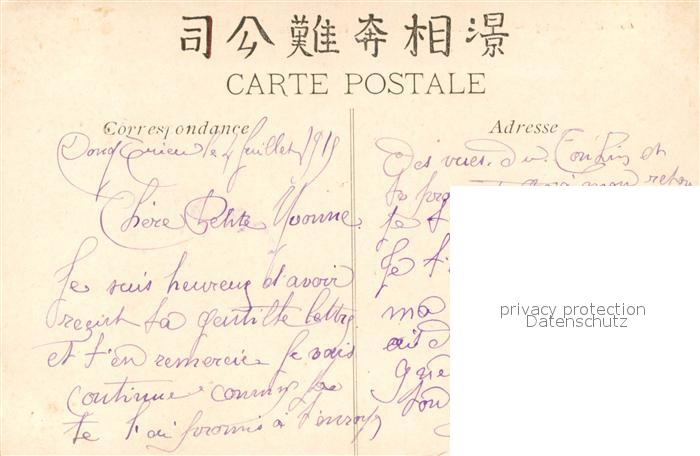 司公難奔相澋
CARTE POSTALE
Correspondance
Adresse
le 4 Juillet 1919
Chère Petite Yvonne
Je suis heureux d'avoir
reçut ta gentille lettre
et t'en remercie Je vais
continuer comme je
te l'ai promis à t'envoyer
Des vues du Tonkin et
mon retour
Je
Je t'
ma
que
privacy protection
Datenschutz